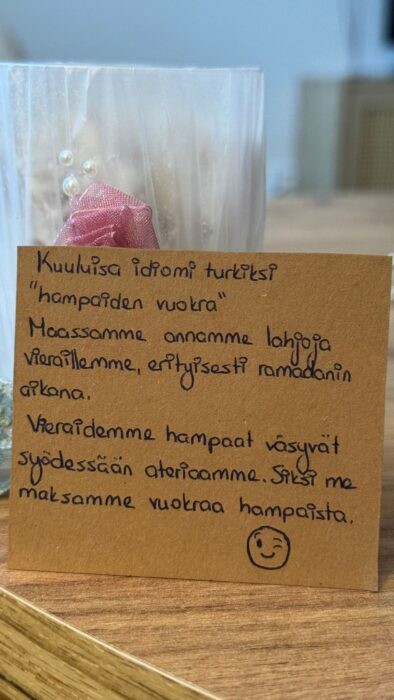 Kuuluisa idiomi turkiksi
"hampaiden vuokra"
Maassamme annamme lahjoja
vieraillemme, erityisesti ramadanin
aikana.
Vieraidemme hampaat väsyvät
syödessään ateriaamme. Siksi me
maksamme vuokraa hampaista.